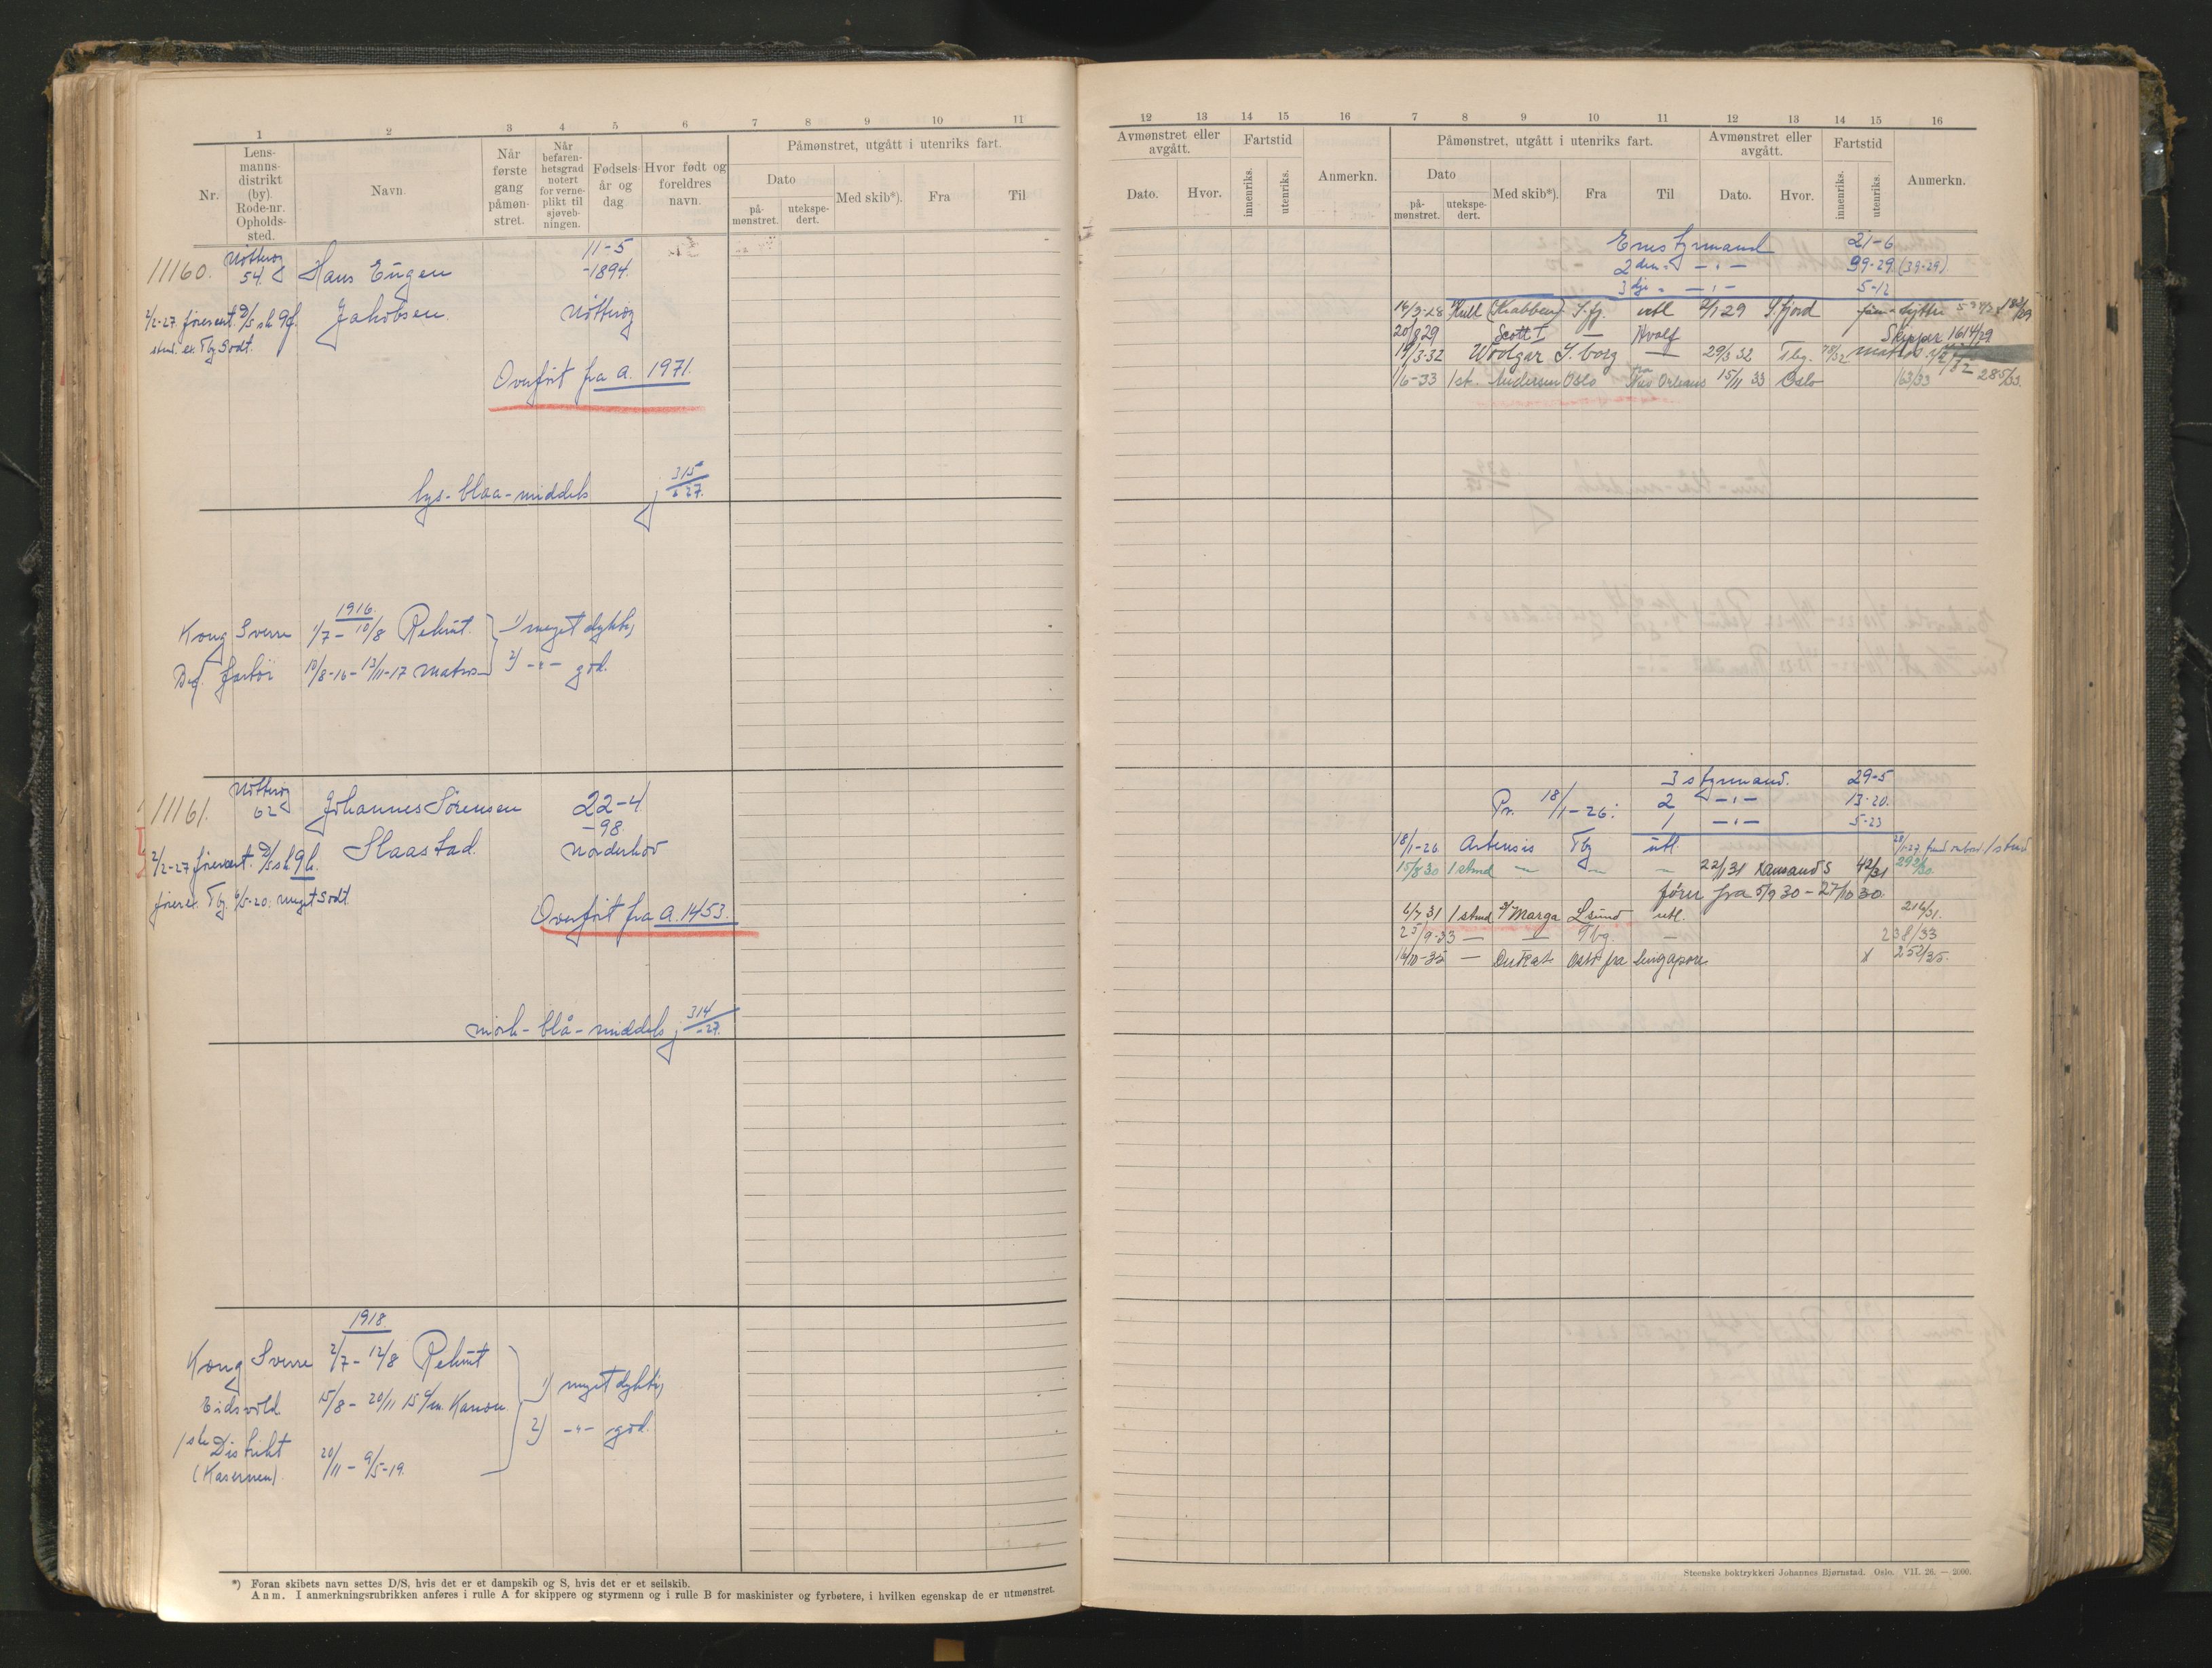 1 2 3 4 5 6 7 8 9 10 11
Nr.
Lens-
manns-
distrikt
(by).
Rode-nr.
Opholds-
sted.
Navn
Når
første
gang
påmøn-
stret.
Når
befaren-
hetsgrad
notert
for verne-
plikt til
sjøveb-
ningen.
Fødsels-
år og
dag
Hvor født og
foreldres
navn.
Påmønstret, utgått i utenriks fart.
Dato
på-
mønstret.
utekspe-
dert.
Med skib*).
Fra
Til
11160.
Nøtterøy
54.
Hans Eugen
Jakobsen.
11-5
-1894.
Nøtterøy
2/2-27 førercert.
Overført fra A. 1971.
lys-blaa-middels
315/-27.
1916.
Kong Sverre 1/7 - 10/8 Rekrut.
10/8-16 - 13/11-17 matros
1) meget dyktig
2) -"- god.
11161.
Nøtterøy
62
Johannes Sørensen
Haastad.
22-4
-98.
Norderhov
2/2-27 førercert.
Overført fra A. 1453.
mørk-blå-middels
314/-27.
1918.
Kong Sverre 2/7 - 12/8 Rekrut
Eidsvold. 15/8 - 20/11 15 c/m. Kanon.
1ste Distrikt
(Kasernen). 20/11 - 9/5-19.
1) meget dyktig
2) -"- god.
*) Foran skibets navn settes D/S, hvis det er et dampskib og S, hvis det er et seilskib.
Anm. I anmerkningsrubrikken anføres i rulle A for skippere og styrmenn og i rulle B for maskinister og fyrbøtere, i hvilken egenskap de er utmønstret.
12 13 14 15 16 7 8 9 10 11 12 13 14 15 16
Avmønstret eller
avgått.
Dato.
Hvor.
Fartstid
innenriks.
utenriks.
Anmerkn.
Påmønstret, utgått i utenriks fart.
Dato
på-
mønstret.
utekspe-
dert.
Med skib*).
Fra
Til
Avmønstret eller
avgått.
Dato.
Hvor.
Fartstid
innenriks.
utenriks.
Anmerkn.
Enestyrmand 21-6
2den -"- 99-29 (39-29)
3dje -"- 5-12
16/3-28 (Krabben) S.fj. utl 2/1-29 S.fjord
20/8 29 Scott I — Hvalf Skipper 161 4/29
19/3-32 Woolgar S.borg — 29/3 32 Tbg.
1/6-33 1st. Andersen Oslo fra New Orleans 15/11 33 Oslo 163/33 285/33.
3 styrmand. 29-5
Pr. 18/1-26: 2 -"- 13-20.
1 -"- 5-23
18/1-26 Artensis Tbg utl.
15/8 30 1 stmd — — — 22/1 31 Kornsands 42/31 292/30.
fører fra 5/9 30 - 27/10 30.
6/7 31 1 stmd Marga L.sund utl. 216/31.
23/9-33 — — Tbg. — 238/33
16/10-35 — Dukat Oslo fra Singapore 252/35.
Steenske boktrykkeri Johannes Bjørnstad. Oslo. VII. 26. — 2000.